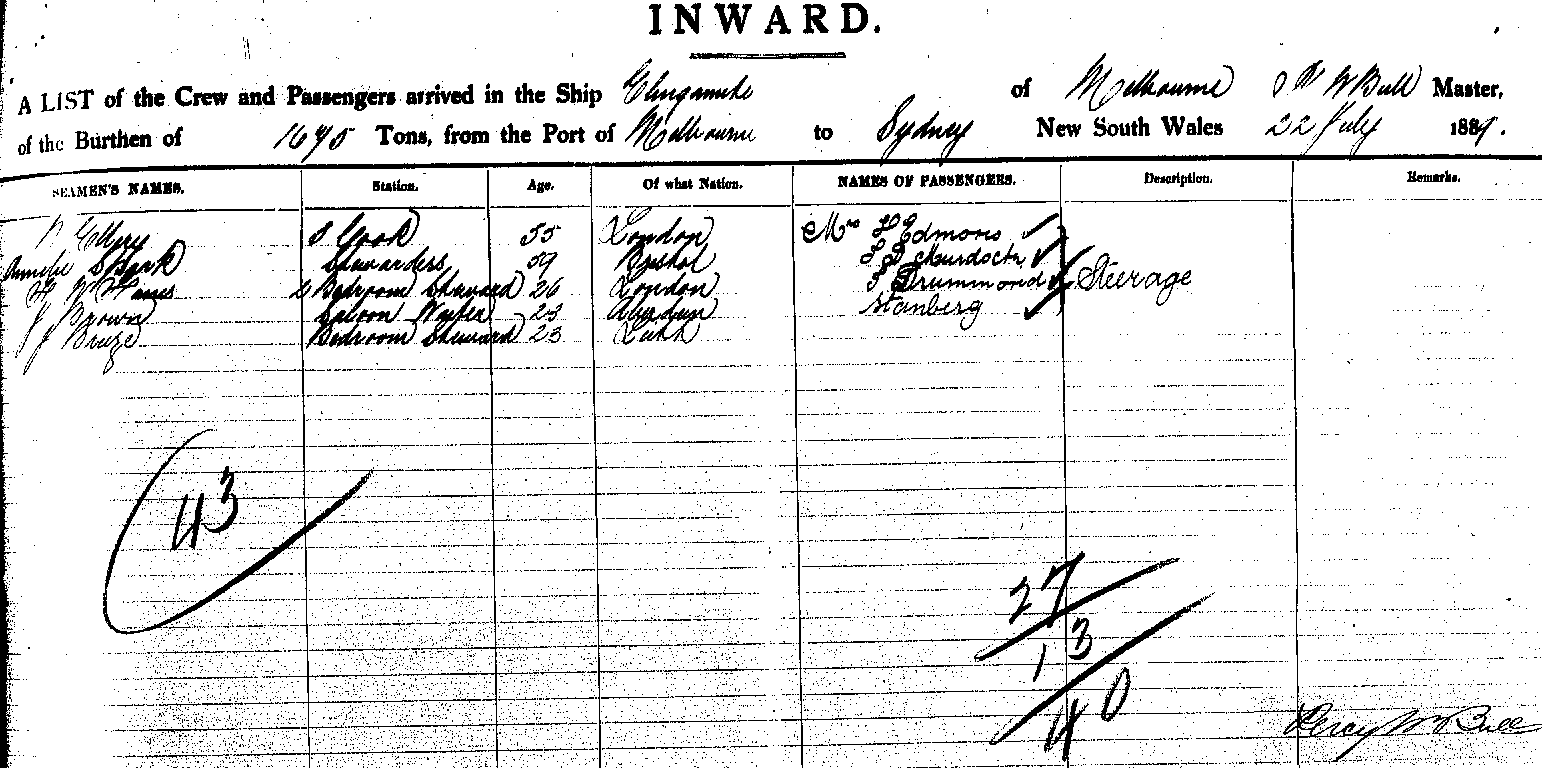 INWARD.
A LIST of the Crew and Passengers arrived in the Ship Elingamite of Melbourne P W Bull Master,
of the Burthen of 1675 Tons, from the Port of Melbourne to Sydney New South Wales 22 July 1889.
SEAMEN'S NAMES. Station. Age. Of what Nation. NAMES OF PASSENGERS. Description. Remarks.
Cook 55 London Mrs H Edmons
Amelia 59 Bristol Murdoch
2 Bedroom Steward 26 London Drummond Steerage
Brown Saloon Waiter 23 Aberdeen Stanberg
J Bedroom Steward 23 Leith
43
27
13
40
Percy W Bull